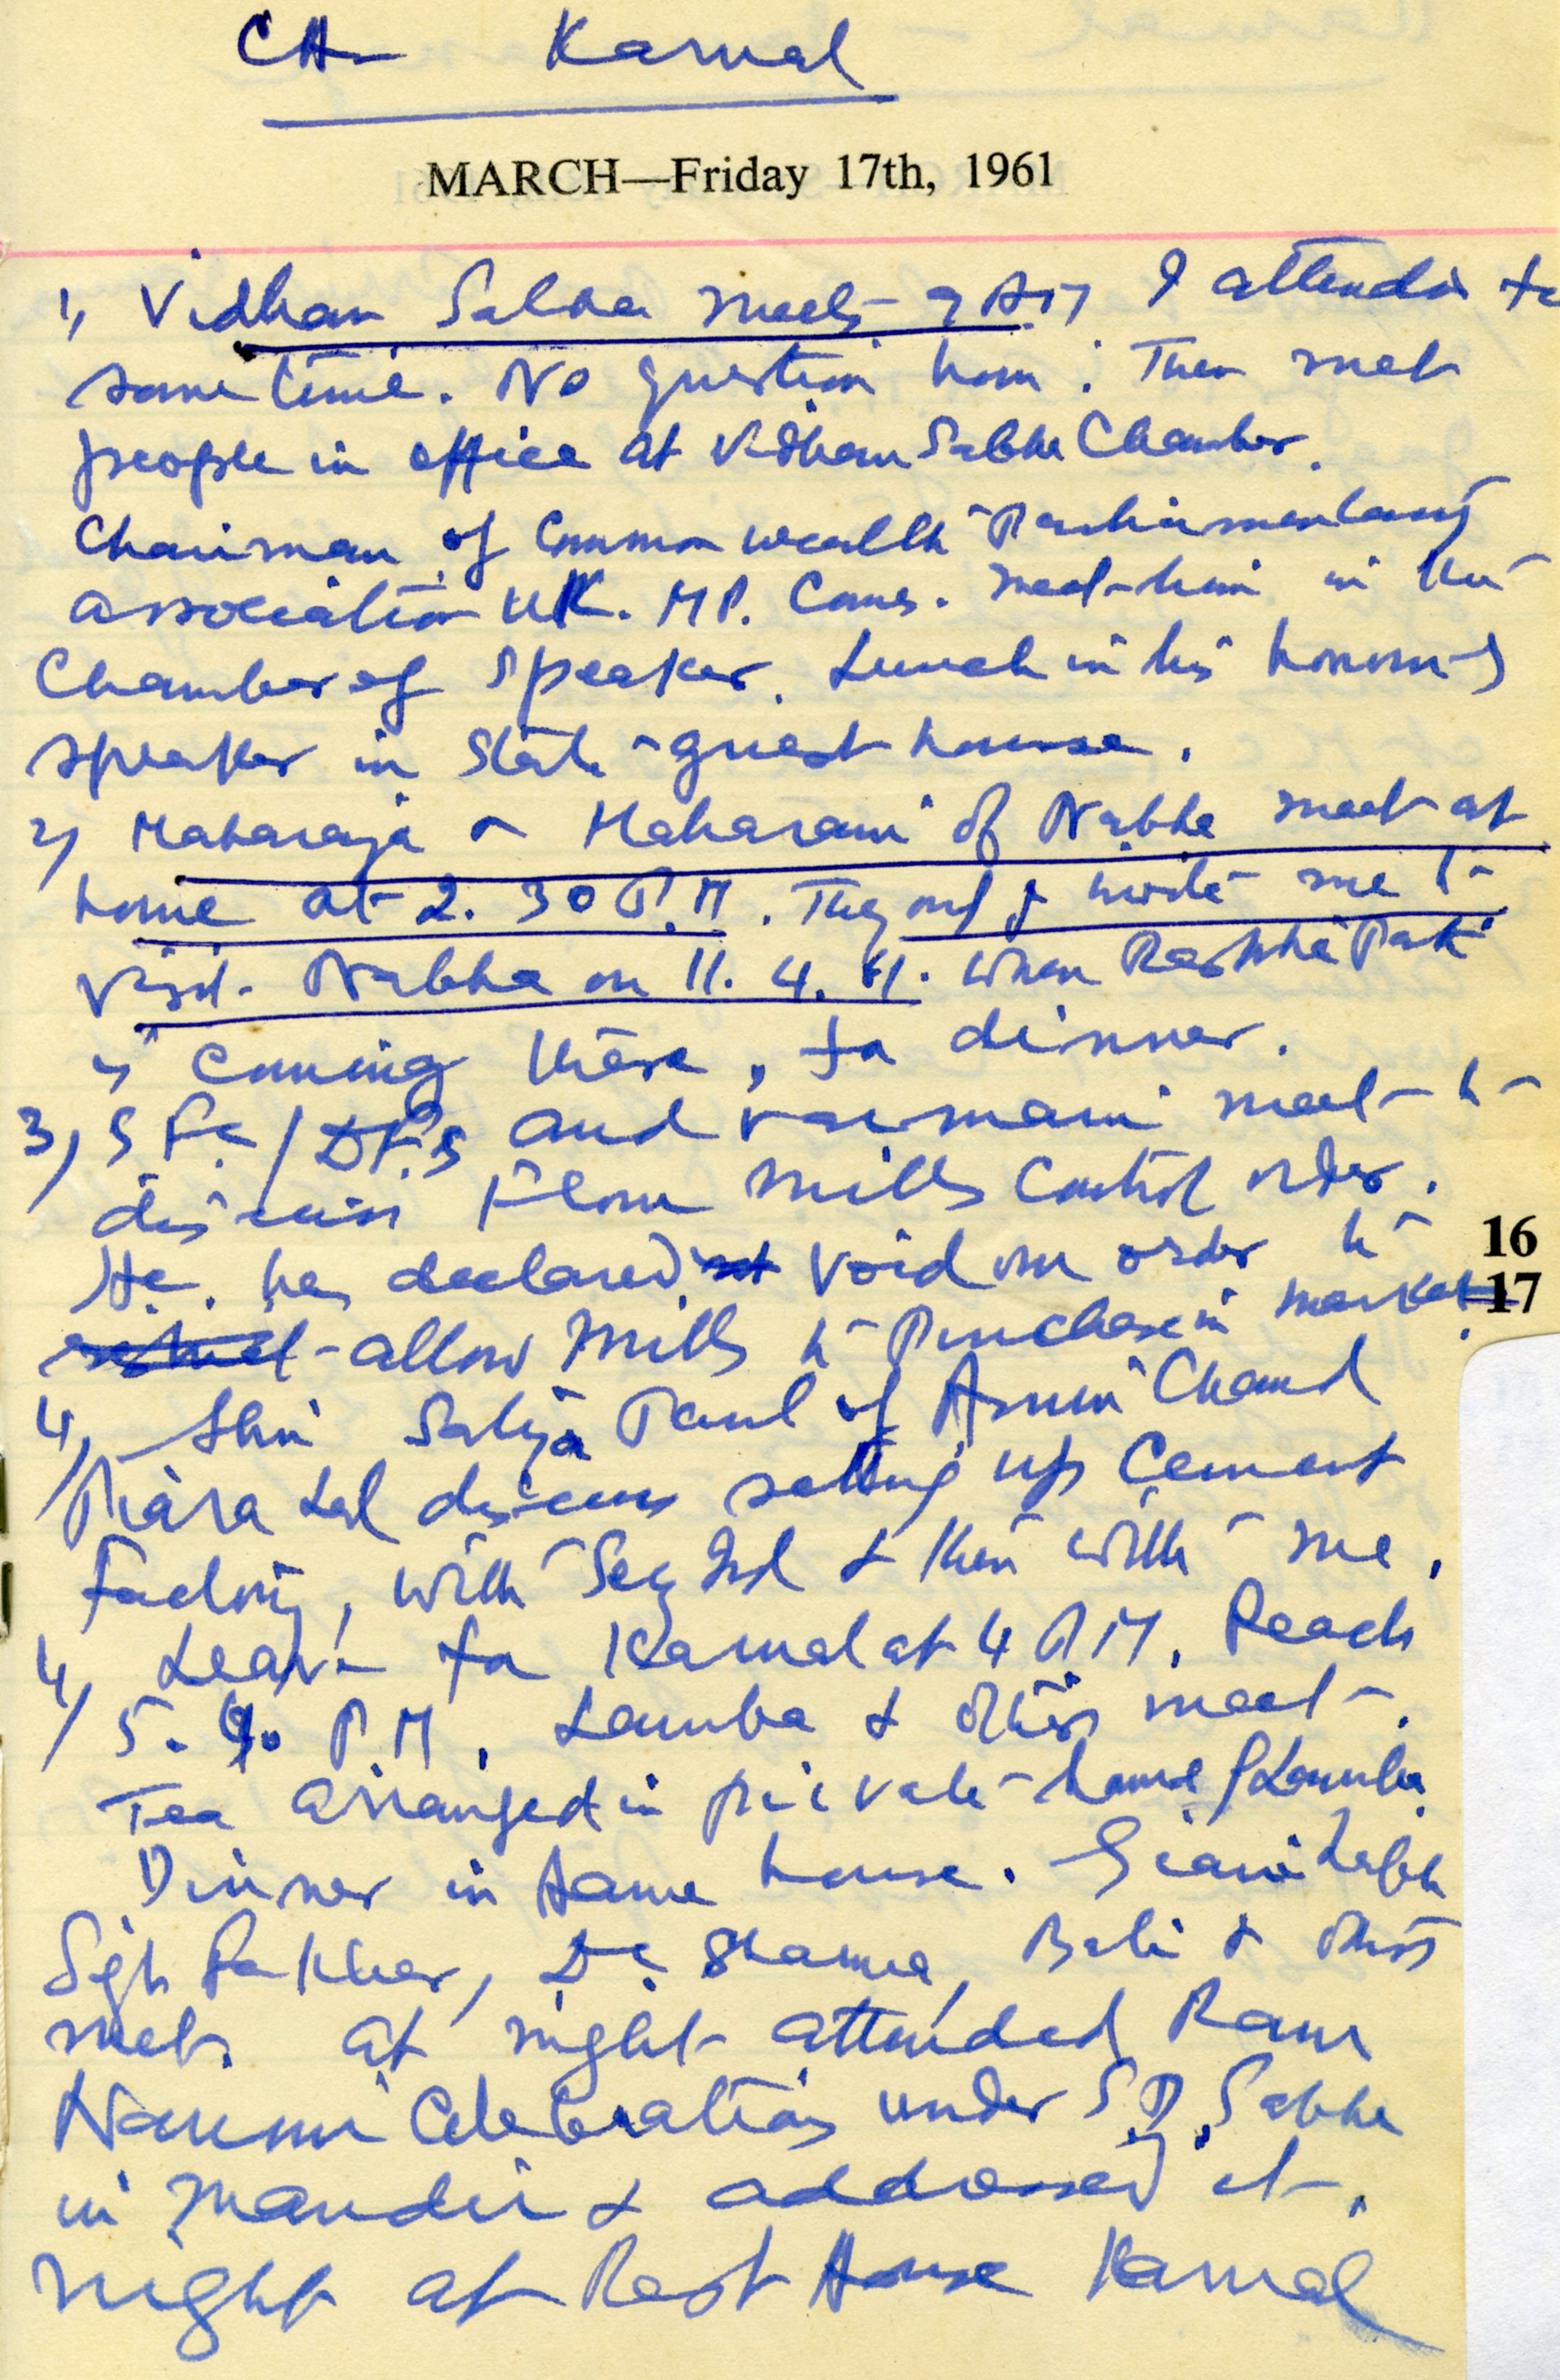 CH- Karnal
MARCH—Friday 17th, 1961
1, Vidhan Sabha meets 9 AM I attended for
some time. No question hour. Then met
people in office at Vidhan Sabha Chamber.
Chairman of Common wealth Parliamentary
association UK. M.P. Comes. Meet him in the
Chamber of Speaker. Lunch in his honour by
Speaker in State guest house.
2, Maharaja & Maharani of Nabha meet at
home at 2. 30 P.M. They invite me to
visit Nabha on 11. 4. 61. when Rashtra Pati
is coming there, for dinner.
3, and meet to
discuss Flour Mills Control order.
H.C. has declared void our order to
allow Mills to Purchase in market.
4, Shri Satya Paul of Amin Chand
Piara Lal discuss setting up Cement
Factory, with Secy Ind & then with me.
4, Leave for Karnal at 4 P.M. Reach
5. 40 P.M. Lamba & others meet.
Tea arranged in private house of Lamba.
Dinner in same house. Giani
Sgh Fakhar, Dr. Shama, Bali & others
met. at night attended Ram
Naumi Celebrations under S.D. Sabha
in Mandir & addressed it.
Night at Rest House Karnal
16
17